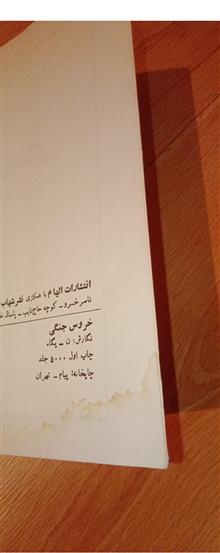 انتشارات الهام با همکاری نشر شهاب
ناصرخسرو - کوچه حاج‌نایب - پاساژ
خروس جنگی
نگارش: ن - پگاه
چاپ اول ۵۰۰۰ جلد
چاپخانه: پیام - تهران